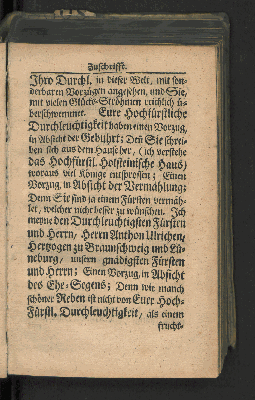 Zuschrifft.
Ihro Durchl. in dieser Welt, mit son-
derbaren Vorzügen angesehen, und Sie,
mit vielen Glücks-Ströhmen reichlich ü-
berschwemmet. Eure Hochfürstliche
Durchleuchtigkeit haben einen Vorzug,
in Absicht der Gebuhrt; Den Sie schrei-
ben sich aus dem Hause her, (ich verstehe
das Hochfürstl. Holsteinische Haus)
woraus viel Könige entsprossen; Einen
Vorzug, in Absicht der Vermählung;
Denn Sie sind ja einem Fürsten vermäh-
let, welcher nicht besser zu wünschen. Ich
meyne den Durchleuchtigsten Fürsten
und Herrn, Herrn Anthon Ulrichen,
Hertzogen zu Braunschweig und Lü-
neburg, unsern gnädigsten Fürsten
und Herrn; Einen Vorzug, in Absicht
des Ehe-Segens; Denn wie manch
schöner Reben ist nicht von Euer Hoch-
Fürstl. Durchleuchtigkeit, als einem
frucht-